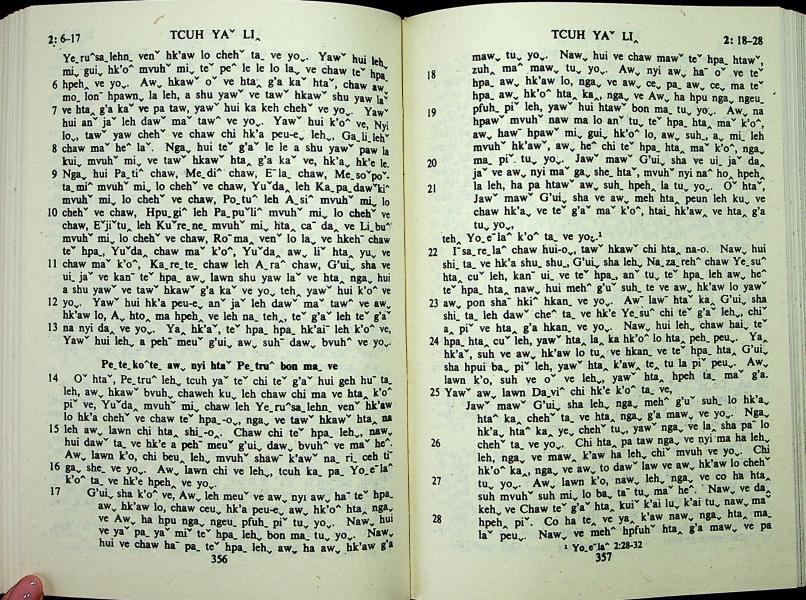 2: 6-17 TCUH YAˇ LI˰
Ye_ru^sa_lehn_ venˇ hk'aw lo chehˇ ta_ ve yo˰. Yawˇ hui leh˰
mi˰ gui˰ hk'o^ mvuhˇ mi˰ teˇ pe^ le le lo la˰ ve chaw teˇ hpa˰
6 hpeh˰ ve yo˰. Aw˰ hkawˇ oˇ ve hta˰ g'a kaˇ htaˇ, chaw aw˰
mo_ lon¯ hpawn˰ la leh, a shu yawˇ ve tawˇ hkawˇ shu yaw laˇ
7 ve hta˰ g'a kaˇ ve pa taw, yawˇ hui ka keh chehˇ ve yo˰. Yawˇ
hui an˄ jaˇ leh dawˇ maˇ tawˇ ve yo˰. Yawˇ hui k'o^ ve, Nyi
lo˰, tawˇ yaw chehˇ ve chaw chi hk'a peu-e˰ leh˰, Ga_li_lehˇ
8 chaw maˇ he^ la˅. Nga˰ hui teˇ g'aˇ le le a shu yawˇ paw la
kui˰ mvuhˇ mi˰ ve tawˇ hkaw hta˰ g'a kaˇ ve, hk'a˰ hk'e le.
9 Nga˰ hui Pa_ti^ chaw, Me_di^ chaw, E¯la_ chaw, Me_so^poˇ-
ta_mi^ mvuhˇ mi˰ lo chehˇ ve chaw, Yuˇda˰ leh Ka_pa_dawˇki^
mvuhˇ mi˰ lo chehˇ ve chaw, Po_tu^ leh A_si^ mvuhˇ mi˰ lo
10 chehˇ ve chaw, Hpu_gi^ leh Pa_puˇli^ mvuhˇ mi˰ lo chehˇ ve
chaw, Eˇjiˇtu˰ leh Kuˇre_ne_ mvuhˇ mi˰ hta˰ caˇ da˰ ve Li_bu^
mvuhˇ mi˰ lo chehˇ ve chaw, Roˇma_ venˇ lo la˰ ve hkehˇ chaw
teˇ hpa˰, Yuˇda˰ chaw maˇ k'o^, Yuˇda˰ aw˰ liˇ hta˰ yu˰ ve
11 chaw maˇ k'o^, Ka_re_te_ chaw leh A_ra^ chaw, G'ui˰ sha ve
ui˰ jaˇ ve kan¯ teˇ hpa˰ aw˰ lawn shu yaw laˇ ve hta˰ nga˰ hui
a shu yawˇ ve tawˇ hkawˇ g'a kaˇ ve yo˰ teh˰ yawˇ hui k'o^ ve
12 yo˰. Yawˇ hui hk'a peu-e˰ an˄ jaˇ leh dawˇ maˇ tawˇ ve aw˰
hk'aw lo, A˰ hto˰ ma hpeh˰ ve leh na teh˰, teˇ g'aˇ leh teˇ g'aˇ
13 na nyi da˰ ve yo˰. Ya˰ hk'aˇ, teˇ hpa˰ hpa˰ hk'ai¯ leh k'o^ ve,
Yawˇ hui leh˰ a pehˇ meuˇ g'ui˰ aw˰ suh¯ dawˇ bvuh^ ve yo˰.
Pe_te_ko^te_ aw˰ nyi htaˇ Pe_truˇ bon ma˰ ve
14 Oˇ htaˇ, Pe_tru^ leh˰ tcuh yaˇ teˇ chi teˇ g'aˇ hui geh huˇ ta_
leh, aw˰ hkawˇ bvuh˰ chaweh ku˰ leh chaw chi ma ve hta˰ k'o^
piˇ ve, Yuˇda˰ mvuhˇ mi˰ chaw leh Ye_ru^sa_lehn_ venˇ hk'aw
lo hk'a chehˇ ve chaw teˇ hpa_-o˰, nga˰ ve tawˇ hkawˇ hta˰ na
15 leh aw˰ lawn chi hta˰ shi_-o˰. Chaw chi teˇ hpa˰ leh˰, naw˰
hui dawˇ ta˰ ve hk'e a pehˇ meuˇ g'ui˰ daw˰ bvuh^ ve maˇ he^.
Aw˰ lawn k'o, chi beu˰ leh˰ mvuhˇ shawˇ k'awˇ na_ ri_ ceh ti¯
16 ga˰ she_ ve yo˰. Aw˰ lawn chi ve leh˰, tcuh ka˰ pa_ Yo_e¯la^
k'o^ ta_ ve hk'e hpeh˰ ve yo˰.
17 G'ui˰ sha k'o^ ve, Aw˰ leh meuˇ ve aw˰ nyi aw˰ ha¯ teˇ hpa˰
aw˰ hk'aw lo, chaw ceu˰ hk'a peu-e˰ aw˰ hk'o^ hta˰ nga˰
ve Aw˰ ha hpu nga˰ ngeu˰ pfuh˰ piˇ tu˰ yo˰. Naw˰ hui
ve yaˇ pa˰ yaˇ miˇ teˇ hpa˰ leh˰ bon ma˰ tu˰ yo˰. Naw˰
hui ve chaw ha¯ pa˰ teˇ hpa˰ leh˰ aw˰ ha aw˰ hk'aw g'a
356
TCUH YAˇ LI˰ 2: 18-28
maw˰ tu˰ yo˰. Naw˰ hui ve chaw mawˇ teˇ hpa˰ htawˇ˰
18 zuh˰ ma^ maw˰ tu˰ yo˰. Aw˰ nyi aw˰ ha¯ oˇ ve teˇ
hpa˰ aw˰ hk'aw lo, nga˰ ve aw˰ ce˰ pa˰ aw˰ ce˰ ma teˇ
hpa˰ aw˰ hk'o^ hta˰ ka˰, nga˰ ve Aw˰ ha hpu nga˰ ngeu˰
19 pfuh˰ piˇ leh, yawˇ hui htawˇ bon ma˰ tu˰ yo˰. Aw˰ na
hpawˇ mvuhˇ naw ma lo anˇ tu˰ teˇ hpa˰ hta˰ maˇ k'o^,
aw˰ hawˇ hpawˇ mi˰ gui˰ hk'o^ lo, aw˰ suh˰ a˰ mi˰ leh
mvuhˇ hk'awˇ, aw˰ he^ chi teˇ hpa˰ hta˰ maˇ k'o^, nga˰
20 ma˰ piˇ tu˰ yo˰. Jawˇ mawˇ G'ui˰ sha ve ui˰ jaˇ da˰
jaˇ ve aw˰ nyi maˇ ga˰ she_ htaˇ, mvuhˇ nyi na^ ho˰ hpeh˰
21 la leh, ha pa htawˇ aw˰ suh˰ hpeh˰ la tu˰ yo˰. Oˇ htaˇ,
Jawˇ mawˇ G'ui˰ sha ve aw˰ meh hta˰ peun leh ku ve
chaw hk'a˰ ve teˇ g'aˇ maˇ k'o^, htai_ hk'aw˰ ve hta˰ g'a
tu˰ yo˰,
teh˰ Yo_e¯la^ k'o^ ta_ ve yo˰.¹
22 I¯sa_re_la^ chaw hui-o˰, tawˇ hkawˇ chi hta˰ na-o. Naw˰ hui
shi_ ta_ ve hk'a shu_ shu_, G'ui˰ sha leh˰ Na_za_reh^ chaw Ye_su^
hta˰ cuˇ leh, kan¯ ui˰ ve teˇ hpa˰ anˇ tu˰ teˇ hpa˰ leh aw˰ he^
teˇ hpa˰ hta˰ naw˰ hui mehˇ g'uˇ suh_ te ve aw˰ hk'aw lo yawˇ
23 aw˰ pon sha¯ hki^ hkan˰ ve yo˰. Aw¯ law¯ htaˇ ka˰ G'ui˰ sha
shi_ ta_ leh dawˇ che^ ta_ ve hk'e Ye_su^ chi teˇ g'aˇ leh˰, chiˇ
a˰ piˇ ve hta˰ g'a hkan˰ ve yo˰. Naw˰ hui leh˰ chaw hai˰ teˇ
24 hpa˰ hta˰ cuˇ leh˰ yawˇ hta˰ la˰ ka hk'o^ lo hta˰ peh_ peu˰. Ya˰
hk'aˇ, suh ve aw˰ hk'aw lo tu˰ ve hkan˰ ve teˇ hpa˰ hta˰ G'ui˰
sha hpui ba˰ piˇ leh, yawˇ hta˰ k'awˇ te˰ tu la piˇ peu˰. Aw˰
lawn k'o, suh ve oˇ ve leh˰, yawˇ hta˰ hpeh ta maˇ g'a.
25 Yawˇ aw˰ lawn Da_vi^ chi hk'e k'o^ ta_ ve,
Jawˇ mawˇ G'ui˰ sha leh˰ nga˰ mehˇ g'uˇ suh_ lo hk'a˰
hta^ ka˰ chehˇ ta_ ve hta˰ nga˰ g'a maw˰ ve yo˰. Nga˰
hk'a˰ hta^ ka˰ ye˰ chehˇ tu˰, yawˇ nga˰ ve la˰ sha paˇ lo
26 chehˇ ta_ ve yo˰. Chi hta˰ pa taw nga˰ ve nyi ma ha leh˰
leh, nga˰ ve maw˰ k'aw ha leh˰ chiˇ mvuh ve yo˰. Chi
hk'o^ ka˰, nga˰ ve aw˰ to dawˇ law ve aw˰ hk'aw lo chehˇ
27 tu˰ yo˰. Aw˰ lawn k'o, naw˰ leh˰ nga˰ ve co ha hta˰
suh mvuhˇ suh mi˰ lo ba˰ taˇ tu˰ maˇ he^. Naw˰ ve da˰
keh˰ ve Chaw teˇ g'aˇ hta˰ kuiˇ k'ai lu˰ k'ai tu˰ naw˰ maˇ
28 hpeh˰ piˇ. Co ha te˰ ve ya˰ k'aw naw˰ nga˰ hta˰ ma_
laˇ peu˰. Naw˰ ve mehˇ hpfuhˇ hta˰ g'a maw˰ ve pa
¹ Yo_e¯la^ 2:28-32
357